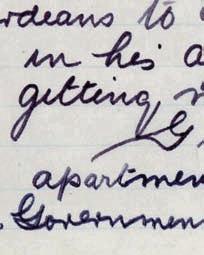 rdeans to
in his a
getting
G
apartmen
Governmen